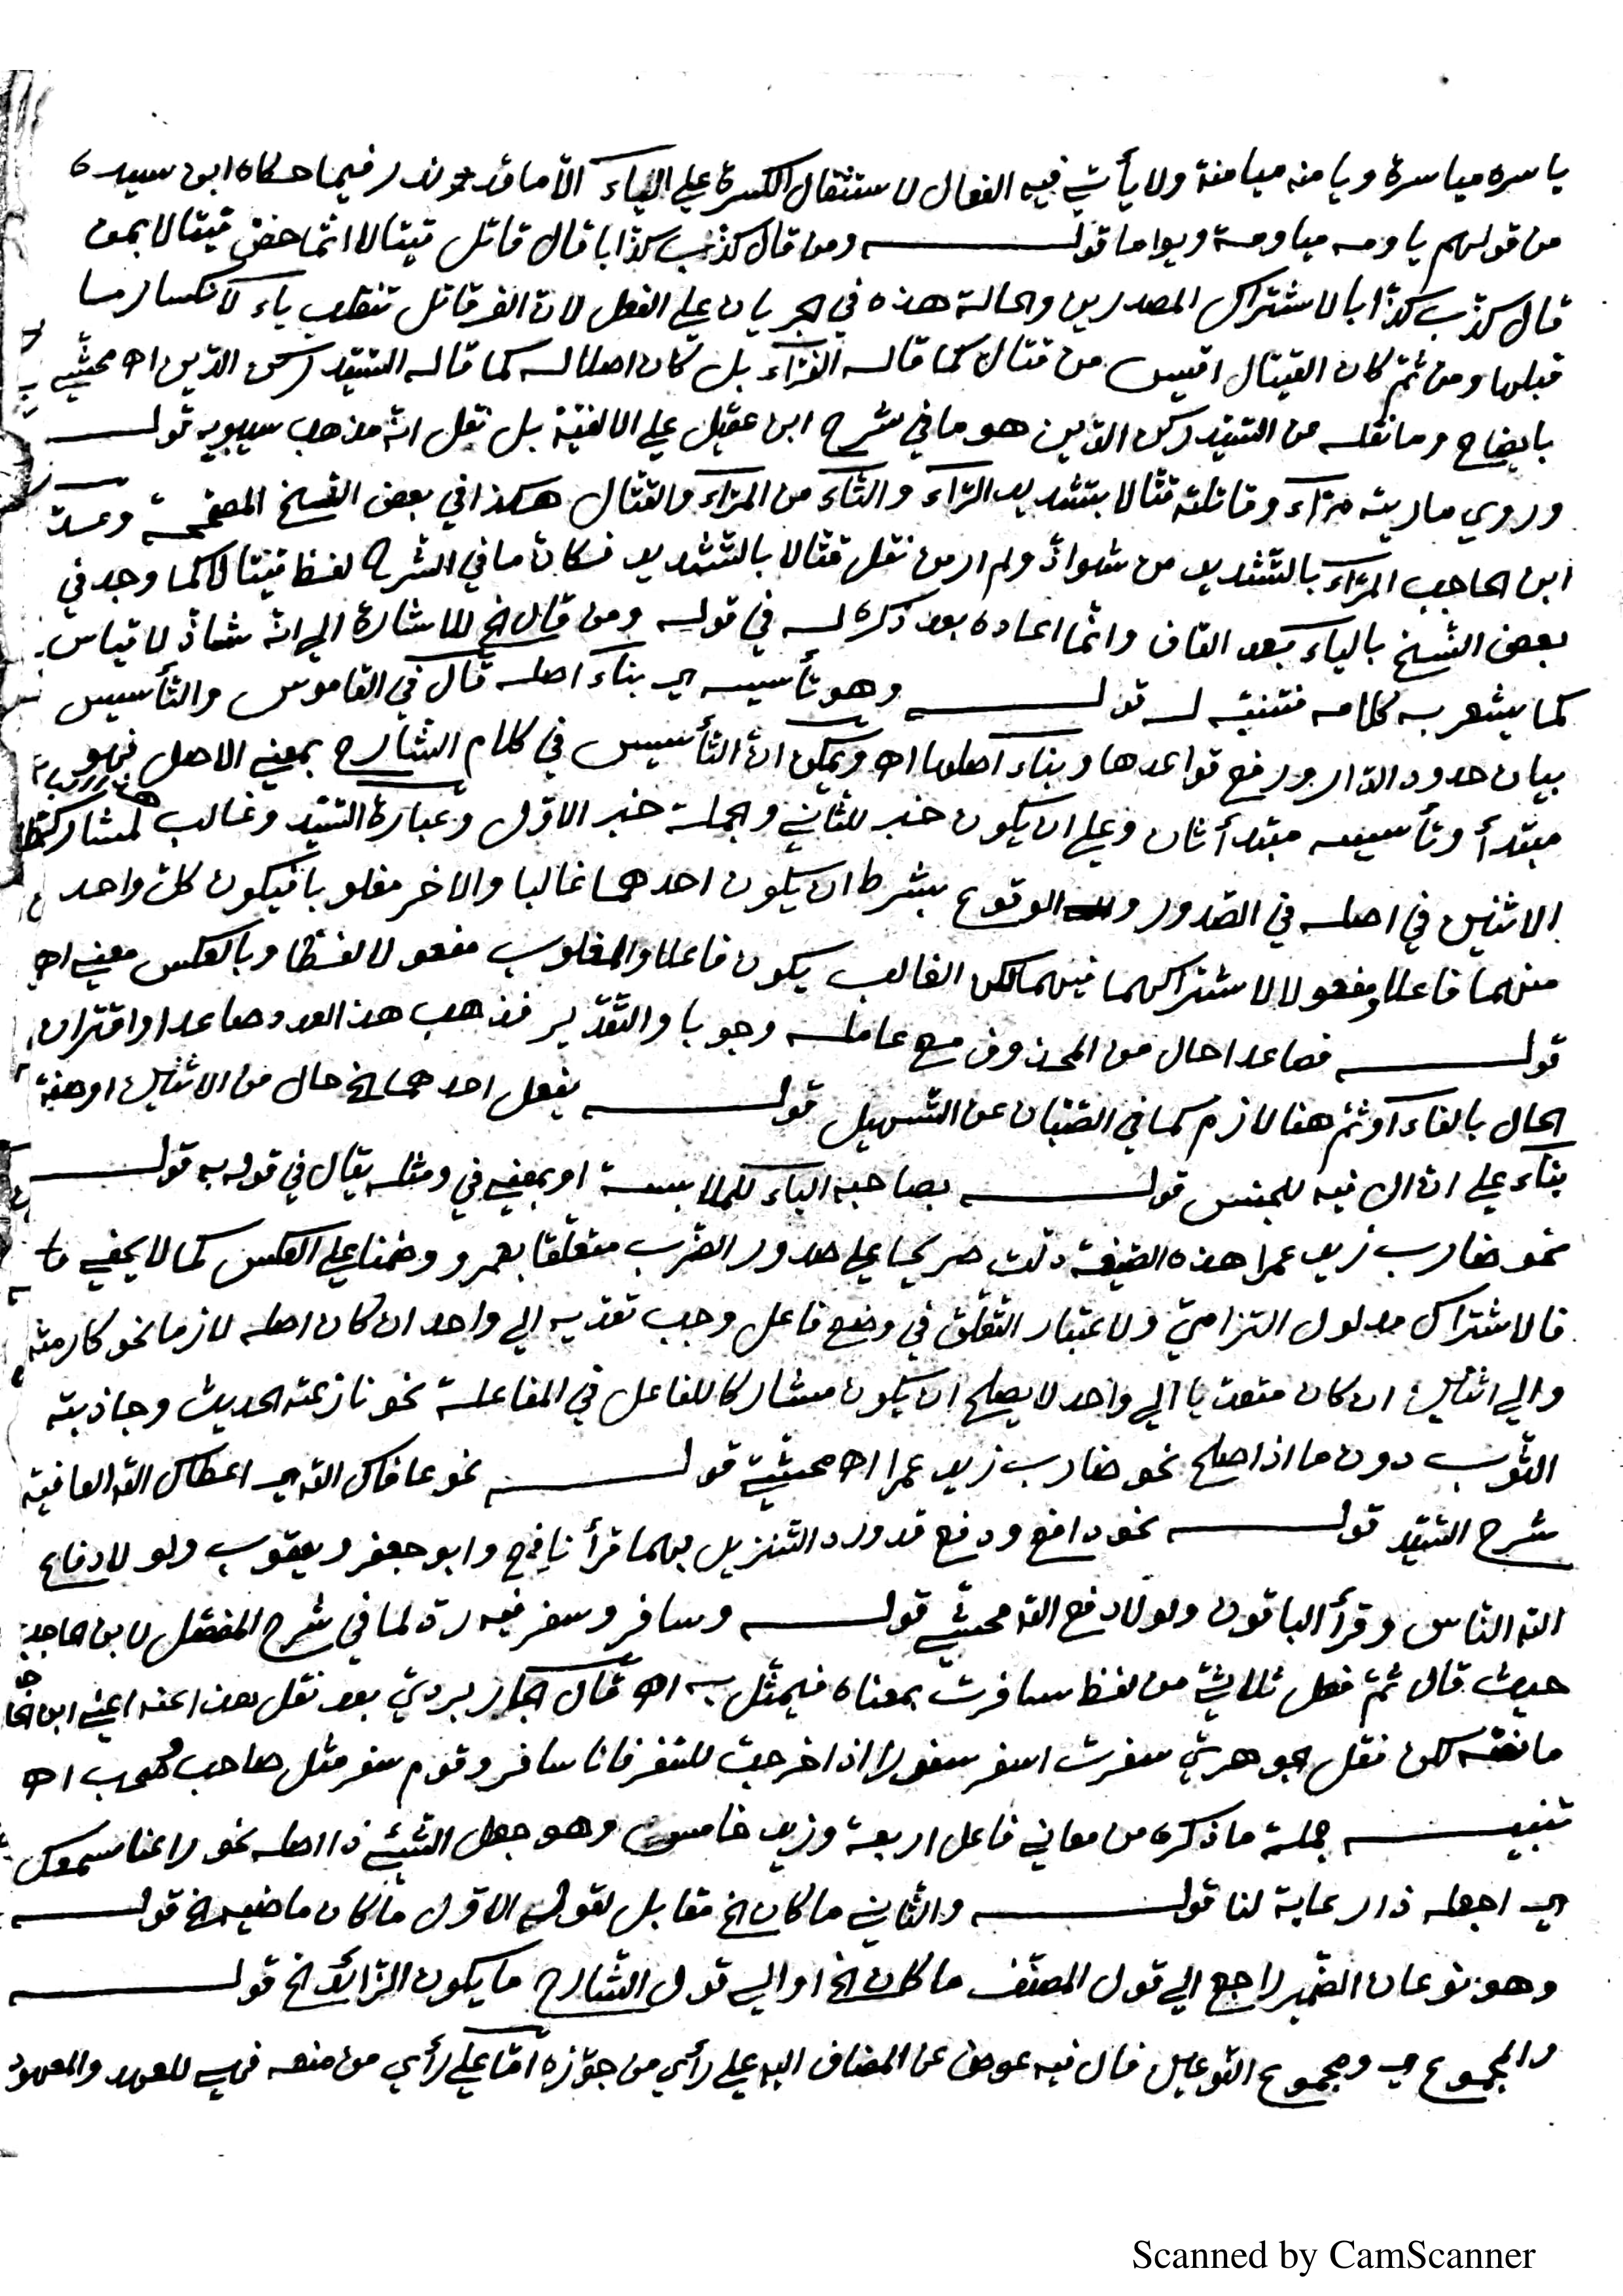 ياسره مياسرة ويامنه ميامنة ولا يأتي فيه الفعال لاستثقال الكسرة على الياء الا ما قد ندر فيما حكاه ابن سيده
من قولهم ياومه مياومة ويواما قولـه ومن قال كذّب كذّابا قال قاتل قيتالا انما خصّ قيتالا بمن
قال كذّب كذّابا لاشتراك المصدرين والحالة هذه في الجريان على الفعل لان الف قاتل تنقلب ياء لانكسار ما
قبلها ومن ثمّ كان القيتال اقيس من قتال كما قاله الفرّاء بل كان اصلا له كما قاله السّيّد ركن الدّين اه محشّي
بايضاح وما نقله من السّيّد ركن الدّين هو ما في شرح ابن عقيل على الالفيّة بل نقل انّه مذهب سيبويه قولـه
وروي ماريته مرّاء وقاتلته قتّالا بتشديد الرّاء والتّاء من المرّاء والقتّال هكذا في بعض النّسخ المصحّحة وعدّ
ابن الحاجب المرّاء بالتّشديد من شواذّ ولم ار من نقل قتّالا بالتّشديد فكانّ ما في الشرح لفظ قيتالا كما وجد في
بعض النّسخ بالياء بعد القاف وانّما اعاده بعد ذكره له في قوله ومن قال الخ للاشارة الى انّه شاذّ لا قياس
كما يشعر به كلامه فتنبّه له قولـه وهو تأسيسه اي بناء اصله قال في القاموس والتّأسيس
بيان حدود الدّار ورفع قواعدها وبناء اصلها اه ويمكن انّ التّأسيس في كلام الشارح بمعنى الاصل فهو
مبتدأ وتأسيسه مبتدأ ثان وعلى ان يكون خبر للثّاني والجملة خبر الاوّل وعبارة السّيّد وغالب لمشاركة
الاثنين في اصله في الصّدور والوقوع بشرط ان يكون احدهما غالبا والاخر مغلوبا فيكون كلّ واحد
منهما فاعلا ومفعولا لاشتراكهما فيهما لكن الغالب يكون فاعلا والمغلوب مفعولا لفظا وبالعكس معنى اه
قولـه فصاعدا حال من المحذوف مع عامله وجوبا والتّقدير فذهب هذا العدد صاعدا واقتران
الحال بالفاء او ثمّ هنا لازم كما في الصّبّان عن التّسهيل قولـه يفعل احدهما الخ حال من الاثنين او صفة
بناء على انّ ال فيه للجنس قولـه بصاحبه الباء للملابسة او بمعنى في ومثله يقال في قوله به قولـه
نحو ضارب زيد عمرا هذه الصّيغة دلّت صريحا على صدور الضّرب متعلّقا بعمرو وضمنا على العكس كما لا يخفى
فالاشتراك مدلول التزاميّ ولاعتبار التّعلّق في وضع فاعل وجب تعديه الى واحد ان كان اصله لازما نحو كارمته
والى اثنين ان كان متعدّيا الى واحد لا يصلح ان يكون مشاركا للفاعل في المفاعلة نحو نازعته الحديث وجاذبته
الثّوب دون ما اذا صلح نحو ضارب زيد عمرا اه محشّي قولـه نحو عافاك الله اي اعطاك الله العافية
شرح السّيّد قولـه نحو دافع ودفع قد ورد التّنزيل بهما قرأ نافع وابو جعفر ويعقوب ولولا دفاع
الله النّاس وقرأ الباقون ولولا دفع الله محشّي قولـه وسافر وسفر فيه ردّ لما في شرح المفصّل لابن الحاجب
حيث قال ثمّ فعل ثلاثيّ من لفظ سافرت بمعناه فيمثّل به اه قال الجاربردي بعد نقل هذا عنه اعني ابن الحاجب
ما نصّه لكن نقل الجوهريّ سفرت اسفر سفورا اذا خرجت للسّفر فانا سافر وقوم سفر مثل صاحب وصحب اه
تنبيـه جملة ما ذكره من معاني فاعل اربعة وزيد خامس وهو جعل الشّيء ذا اصله نحو راعنا سمعك
اي اجعله ذا رعاية لنا قولـه والثّاني ما كان الخ مقابل لقوله الاوّل ما كان ماضيه الخ قولـه
وهو نوعان الضّمير راجع الى قول المصنّف ما كان الخ او الى قول الشّارح ما يكون الزّائد الخ قولـه
والمجموع اي ومجموع النّوعين فال فيه عوض عن المضاف اليه على رأي من جوّزه امّا على رأي من منعه فهي للعهد والمعهود
Scanned by CamScanner